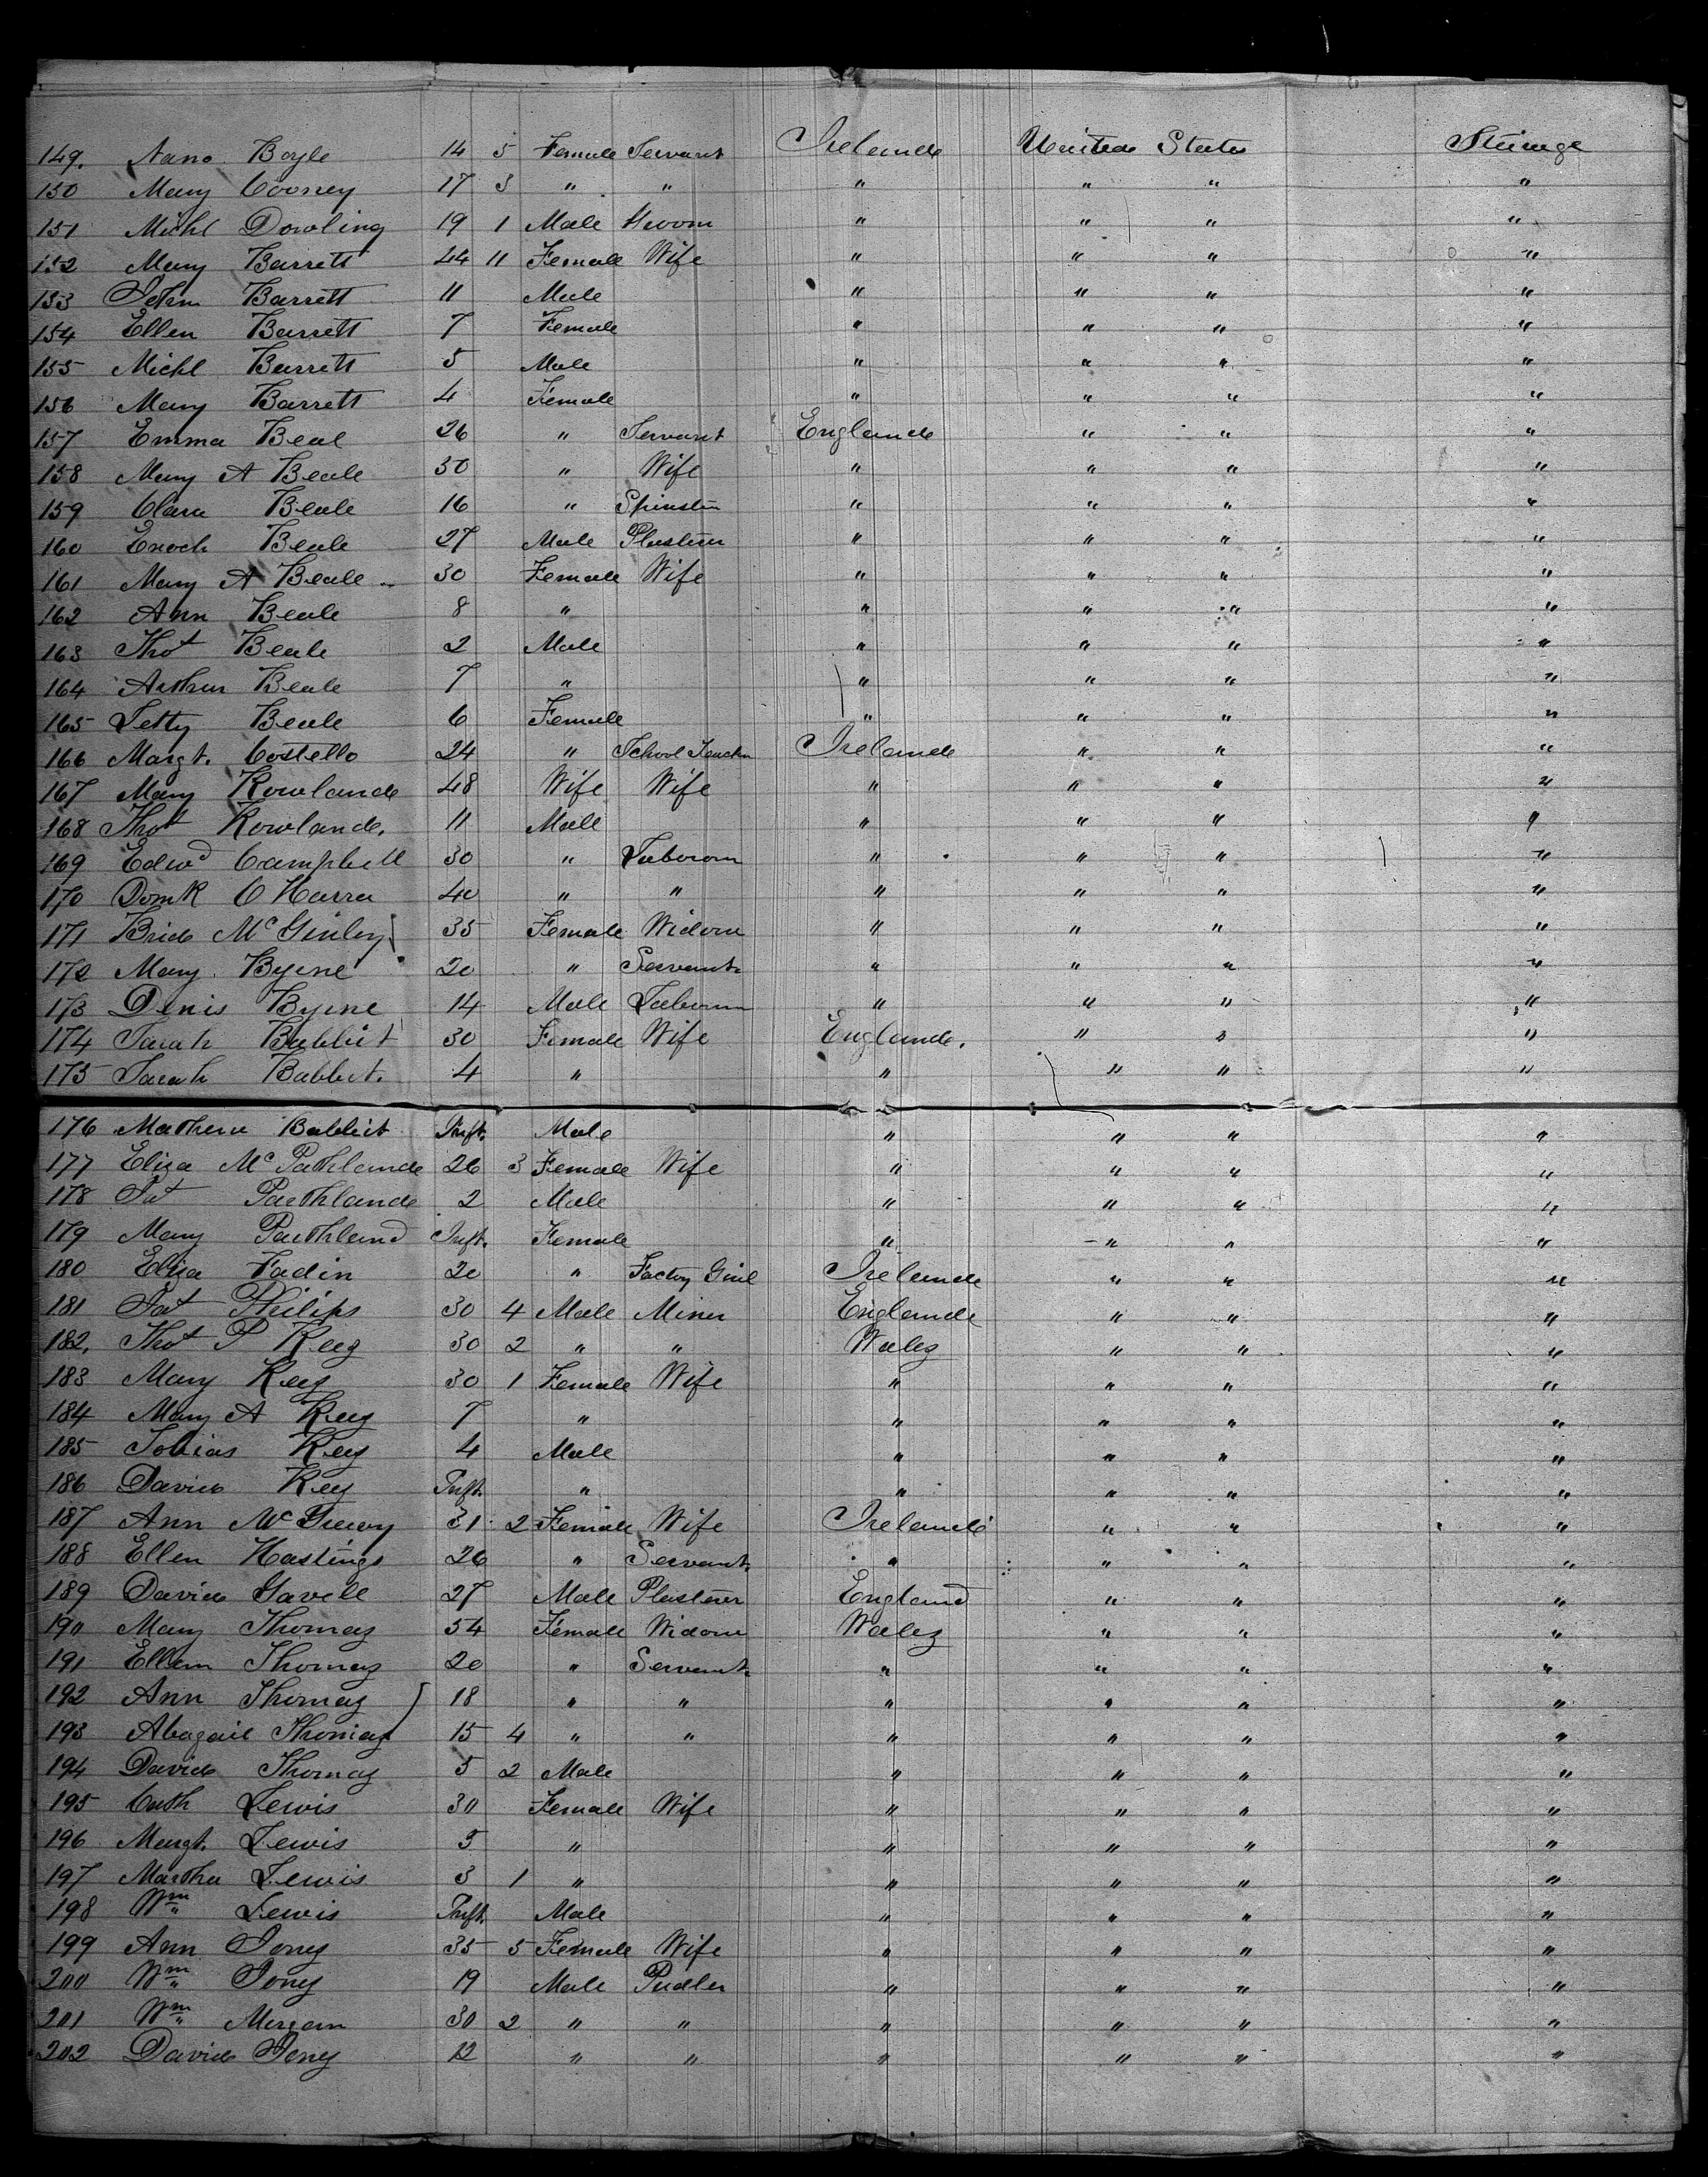 149. Nano Boyle 14 5 Female Servant Ireland United States Steerage
150 Mary Cooney 17 3 " " " " " "
151 Michl Dowling 19 1 Male Groom " " " "
152 Mary Barrett 44 11 Female Wife " " " "
153 John Barrett 11 Male " " " "
154 Ellen Barrett 7 Female " " " "
155 Michl Barrett 5 Male " " " "
156 Mary Barrett 4 Female " " " "
157 Emma Beal 26 " Servant England " " "
158 Mary A Beale 30 " Wife " " " "
159 Clara Beale 16 " Spinster " " " "
160 Enoch Beale 27 Male Plasterer " " " "
161 Mary A Beale 30 Female Wife " " " "
162 Ann Beale 8 " " " " "
163 Thos Beale 2 Male " " " "
164 Arthur Beale 7 " " " " "
165 Letty Beale 6 Female " " " "
166 Margt. Costello 24 " School Teacher Ireland " " "
167 Mary Rowland 48 Wife Wife " " " "
168 Thos Rowland. 11 Male " " " "
169 Edwd Campbell 30 " Laborour " " " "
170 Domk O Harra 40 " " " " " "
171 Brid McGinley 35 Female Widow " " " "
172 Mary Byrne 20 " Servant " " " "
173 Denis Byrne 14 Male Labourer " " " "
174 Sarah Babbit 30 Female Wife England. " " "
175 Sarah Babbit. 4 " " " " "
176 Mathew Babbit Inft. Male " " " "
177 Eliza Mc Pathland 26 3 Female Wife " " " "
178 Pat Parthland 2 Male " " " "
179 Mary Parthland Inft. Female " " " "
180 Eliza Fadin 20 " Factory Girl Ireland " " "
181 Pat Philips 30 4 Male Miner England " " "
182. Thos P Rees 30 2 " " Wales " " "
183 Mary Rees 30 1 Female Wife " " " "
184 Mary A Rees 7 " " " " "
185 Tobias Rees 4 Male " " " "
186 David Rees Inft. " " " " "
187 Ann Mc 31 2 Female Wife Ireland " " "
188 Ellen Hastings 26 " Servant " " " "
189 David Savell 27 Male Plasterer England " " "
190 Mary Thomas 54 Female Widow Wales " " "
191 Ellen Thomas 20 " Servant " " " "
192 Ann Thomas 18 " " " " " "
193 Abagail Thomas 15 4 " " " " " "
194 David Thomas 5 2 Male " " " "
195 Cath Lewis 30 Female Wife " " " "
196 Margt. Lewis 5 " " " " "
197 Martha Lewis 3 1 " " " " "
198 Wm Lewis Inft. Male " " " "
199 Ann Jones 35 5 Female Wife " " " "
200 Wm Jones 19 Male Pudler " " " "
201 Wm Morgan 30 2 " " " " " "
202 David Jones 12 " " " " " "